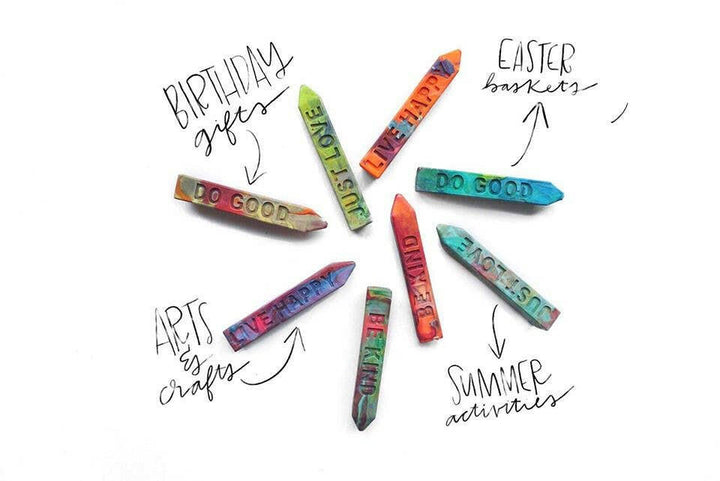 BIRTHDAY
gifts
EASTER
baskets
JUST LOVE
LIVE HAPPY
DO GOOD
DO GOOD
BE KIND
JUST LOVE
LIVE HAPPY
BE KIND
ARTS
&
crafts
SUMMER
activities